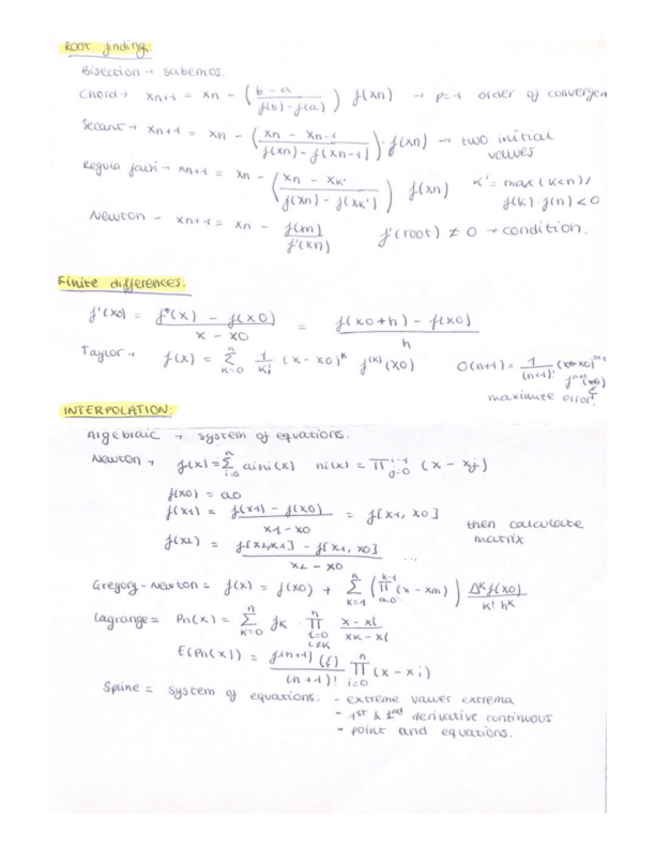 ROOT finding:
Bisección → sabemos.
Chord → xn+1 = xn - ( b - a / f(b) - f(a) ) f(xn) → p=1 order of convergen
Secant → xn+1 = xn - ( xn - xn-1 / f(xn) - f(xn-1) ) · f(xn) → two initial values
Regula falsi → xn+1 = xn - ( xn - xk' / f(xn) - f(xk') ) f(xn) K' = max (k<n) / f(k)·f(n) < 0
Newton - xn+1 = xn - f(xn) / f'(xn) f'(root) ≠ 0 → condition.
Finite differences:
f'(x0) = f(x) - f(x0) / x - x0 = f(x0+h) - f(x0) / h
Taylor → f(x) = n Σ k=0 1/k! (x - x0)^k f^(k)(x0) O(n+1) = 1/(n+1)!
error
INTERPOLATION:
Algebraic → system of equations.
Newton → f(x) = n Σ i=0 ai ni(x) ni(x) = ∏ i-1 j=0 (x - xj)
f(x0) = a0
f(x1) = f(x1) - f(x0) / x1 - x0 = f[x1, x0]
then calculate matrix
f(x2) = f[x2,x1] - f[x1, x0] / x2 - x0 ...
Gregory-Newton = f(x) = f(x0) + n Σ k=1 ( k-1 ∏ m=0 (x - xm) ) Δ^k f(x0) / k! h^k
Lagrange = Pn(x) = n Σ k=0 fk · n ∏ i=0 i≠k x - xi / xk - xi
E(Pn(x)) = f(n+1)(ξ) / (n+1)! n ∏ i=0 (x - xi)
Spline = system of equations. - extreme values extrema
- 1st & 2nd derivative continuous
- point and equations.